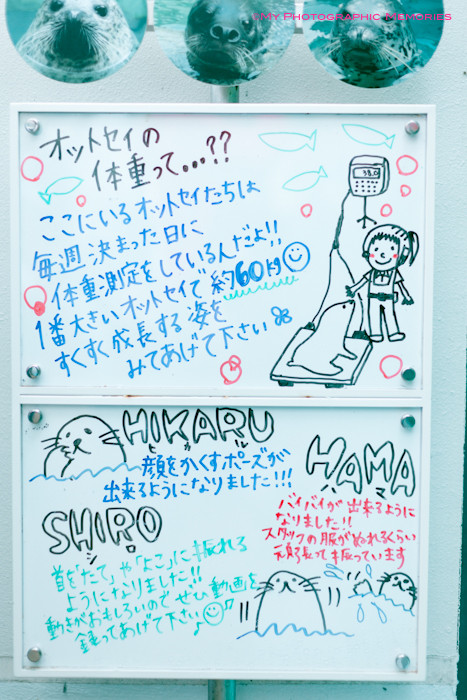 MY PHOTOGRAPHIC MEMORIES
オットセイの
体重って…??
ここにいるオットセイたちは
毎週決まった日に
体重測定をしているんだよ!!
1番大きいオットセイで約60kg
すくすく成長する姿を
みてあげて下さい
HIKARU
ヒカル
顔をかくすポーズが
出来るようになりました!!!
HAMA
ハマ
バイバイが出来るように
なりました!!
スタッフの服がぬれるくらい
元気良く振っています
SHIRO
シロ
首を「たて」や「よこ」に振れる
ようになりました!!
動きがおもしろいのでぜひ動画を
録ってあげて下さい